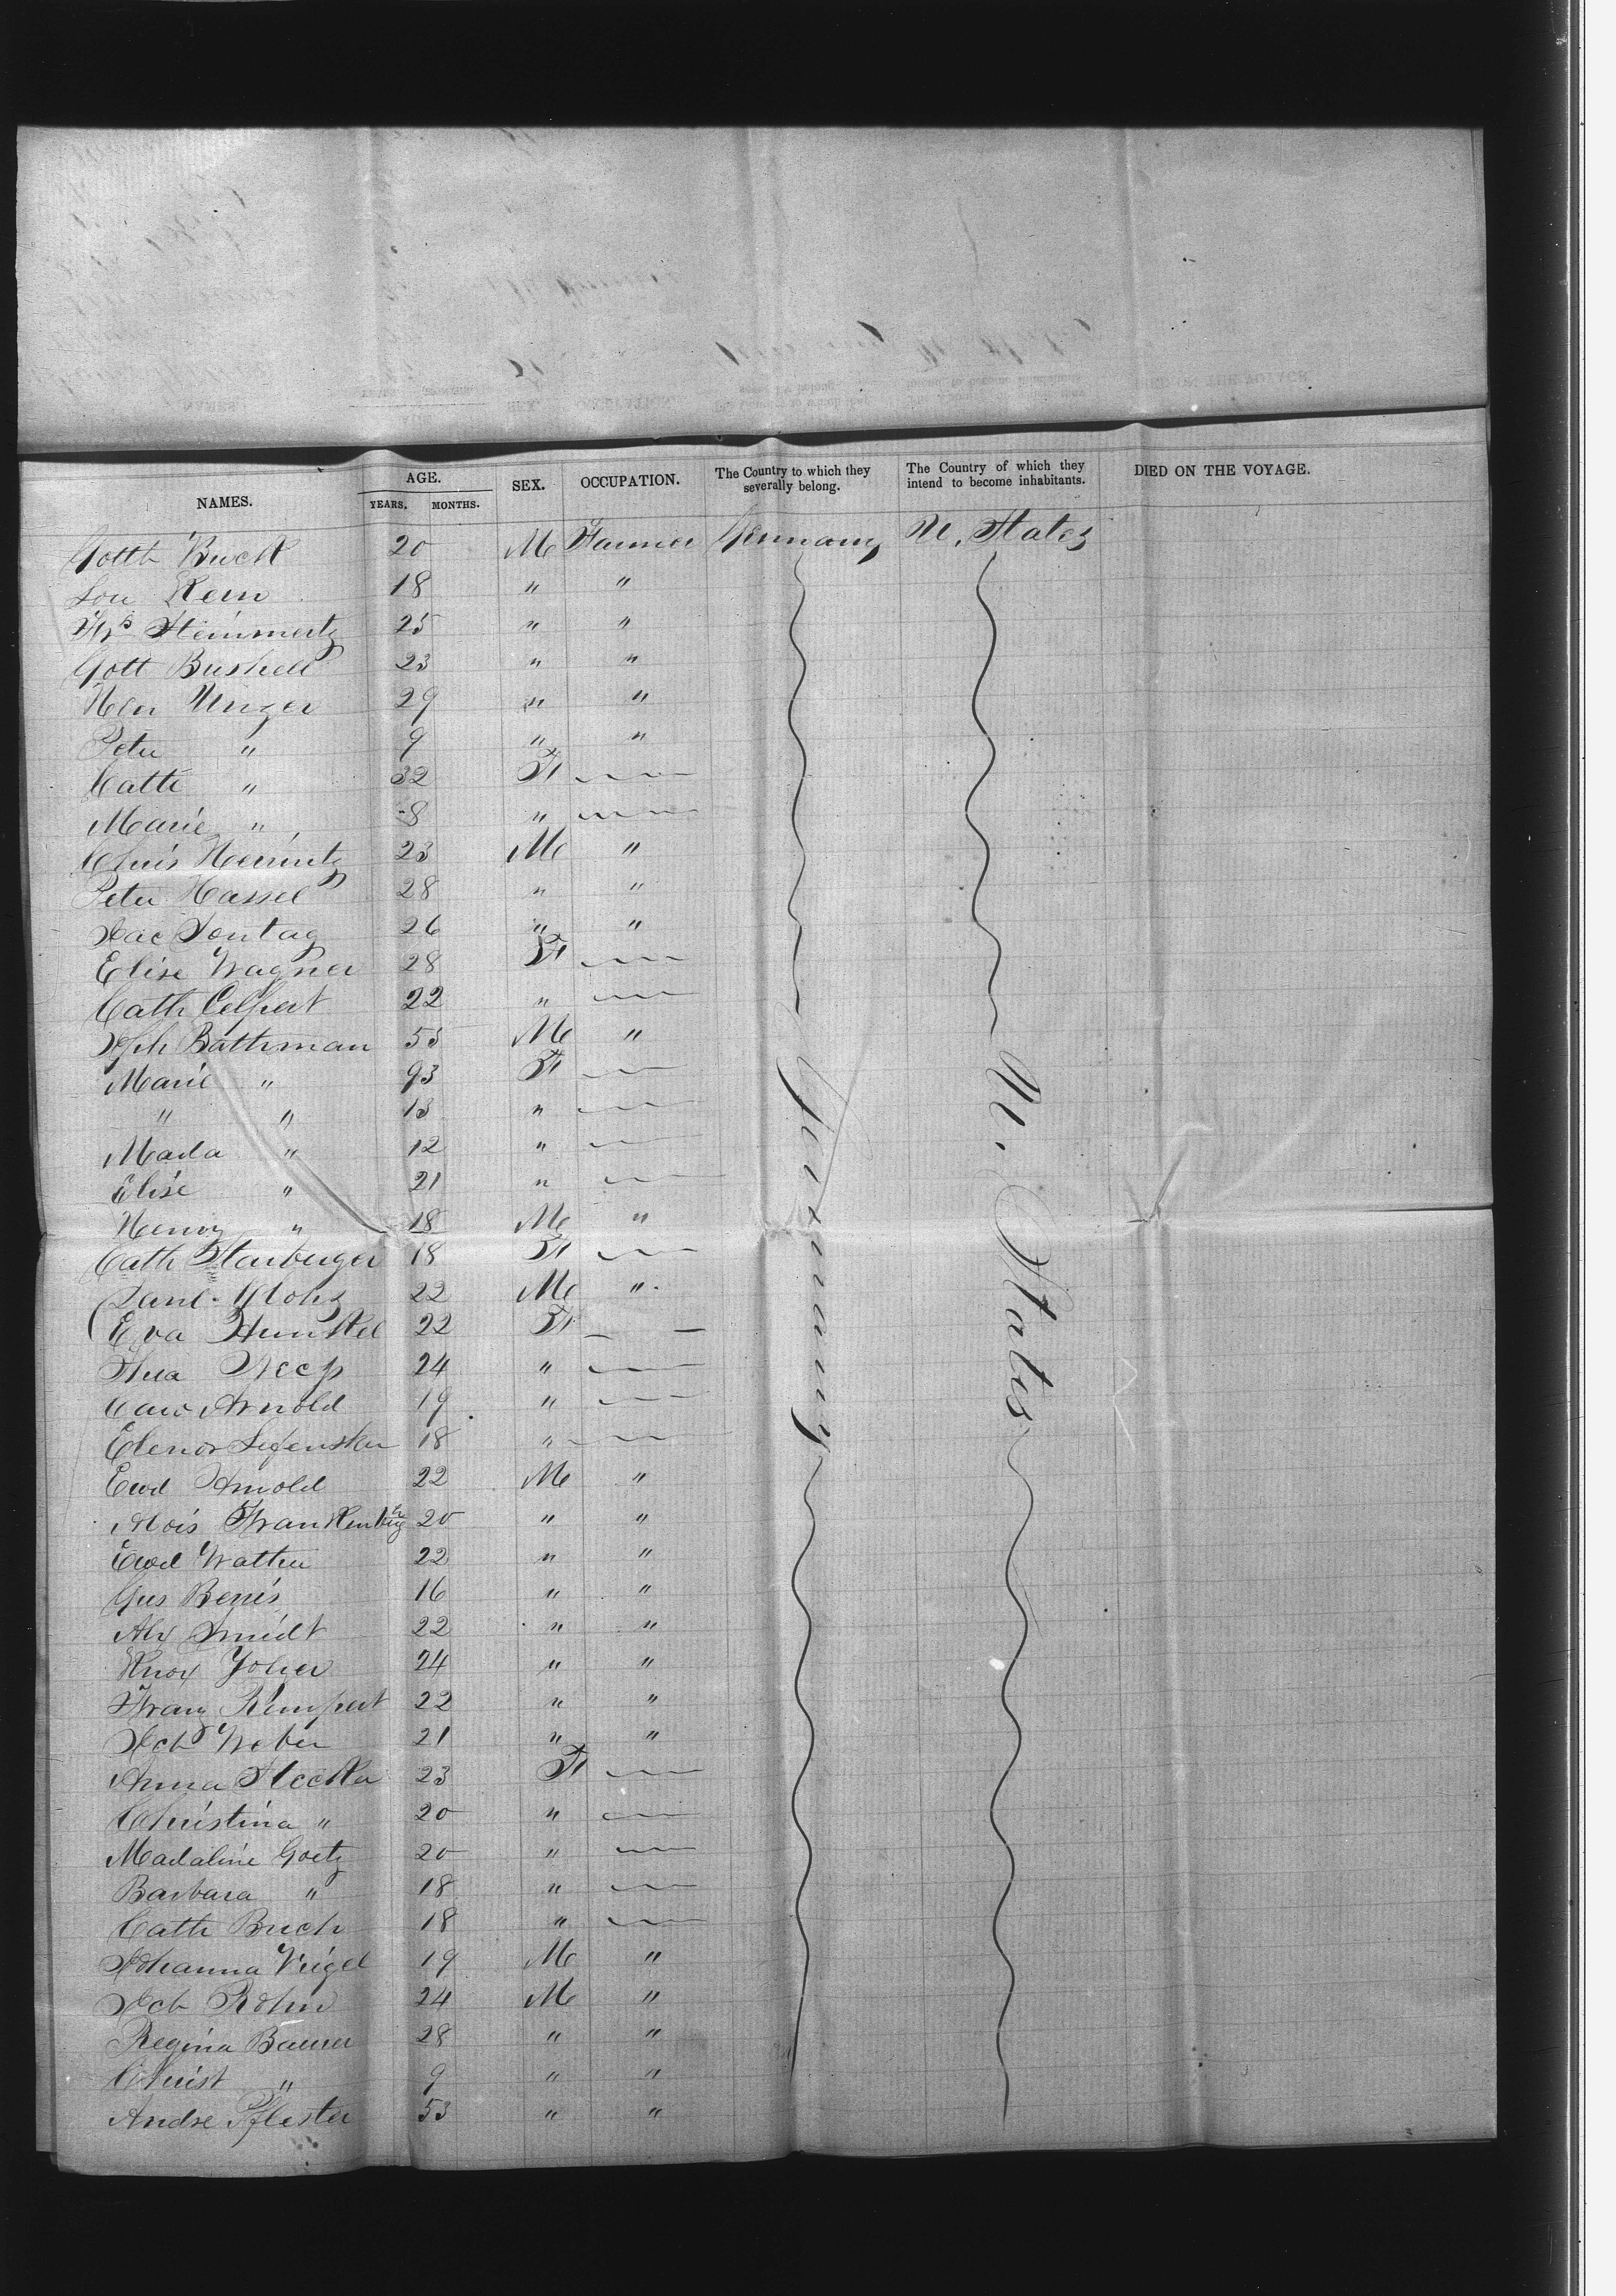 NAMES. AGE. YEARS. MONTHS. SEX. OCCUPATION. The Country to which they severally belong. The Country of which they intend to become inhabitants. DIED ON THE VOYAGE.
Gottb Buck 20 M Farmer Germany U. States
Lou Kern 18 " "
Steinmertz 25 " "
Gott Bushell 23 " "
Unger 29 " "
Peter " 9 " "
Cath " 32 F
Marie " 8 "
Chris 23 M "
Peter Hassel 28 " "
Jac Sontag 26 " "
Elise Wagner 28 F
Cath 22 "
Jph Bathman 53 M "
Marie " 93 F
" " 13 "
Mada " 12 "
Elise " 21 "
Henry " 18 M "
Cath Starberger 18 F
22 M "
Eva Hunkel 22 F
24 "
Caro Arnold 19 "
Elenor 18 "
Ewd Arnold 22 M "
Alois Frankenbeg 20 " "
Ewd Walther 22 " "
Gus Benis 16 " "
Alx Smidt 22 " "
Knox Joher 24 " "
Franz Kempert 22 " "
Jcb Weber 21 " "
Anna Stecker 23 F
Christina " 20 "
Madaline Goetz 20 "
Barbara " 18 "
Cath Buch 18 "
Johanna Veigel 19 M "
Jcb Rohm 24 M "
Regina Bauer 28 " "
Christ " 9 " "
Andre Pflester 53 " "
Germany
U. States